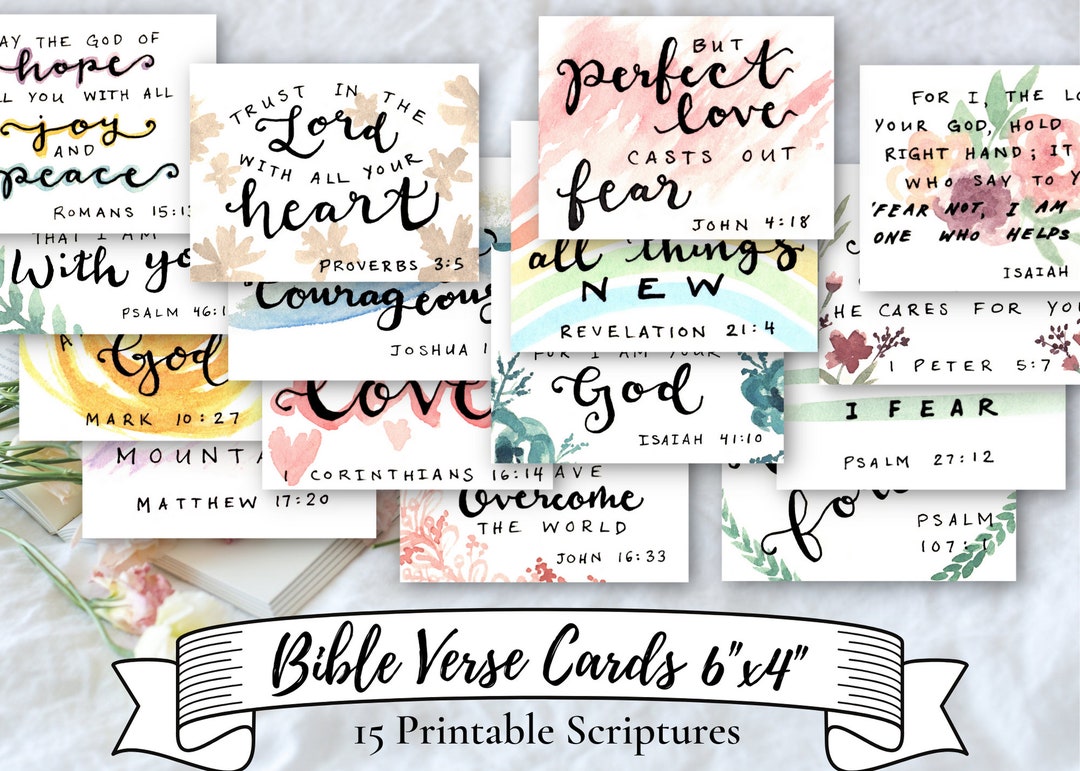 THE GOD OF
hope
YOU WITH ALL
joy
AND
peace
ROMANS 15:13
TRUST IN THE
Lord
WITH ALL YOUR
heart
PROVERBS 3:5
BUT
perfect
love
CASTS OUT
fear
JOHN 4:18
FOR I, THE
YOUR GOD, HOLD
RIGHT HAND; IT
WHO SAY TO
'FEAR NOT, I AM
ONE WHO HELPS
ISAIAH
THAT I AM
With
PSALM 46:
Courageous
JOSHUA 1
all things
NEW
REVELATION 21:4
HE CARES FOR
1 PETER 5:7
God
MARK 10:27
love
1 CORINTHIANS 16:14
FOR I AM YOUR
God
ISAIAH 41:10
I FEAR
PSALM 27:12
MATTHEW 17:20
Overcome
THE WORLD
JOHN 16:33
PSALM
107:1
Bible Verse Cards 6"x4"
15 Printable Scriptures